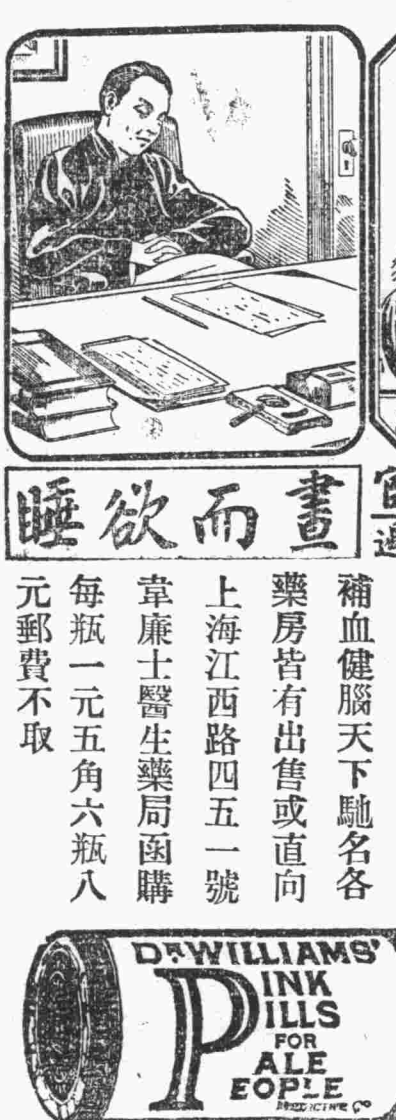 晝而欲睡
補血健腦天下馳名各
藥房皆有出售或直向
上海江西路四五一號
韋廉士醫生藥局函購
每瓶一元五角六瓶八
元郵費不取
DR. WILLIAMS'
PINK
PILLS
FOR
PALE
PEOPLE
MEDICINE Co